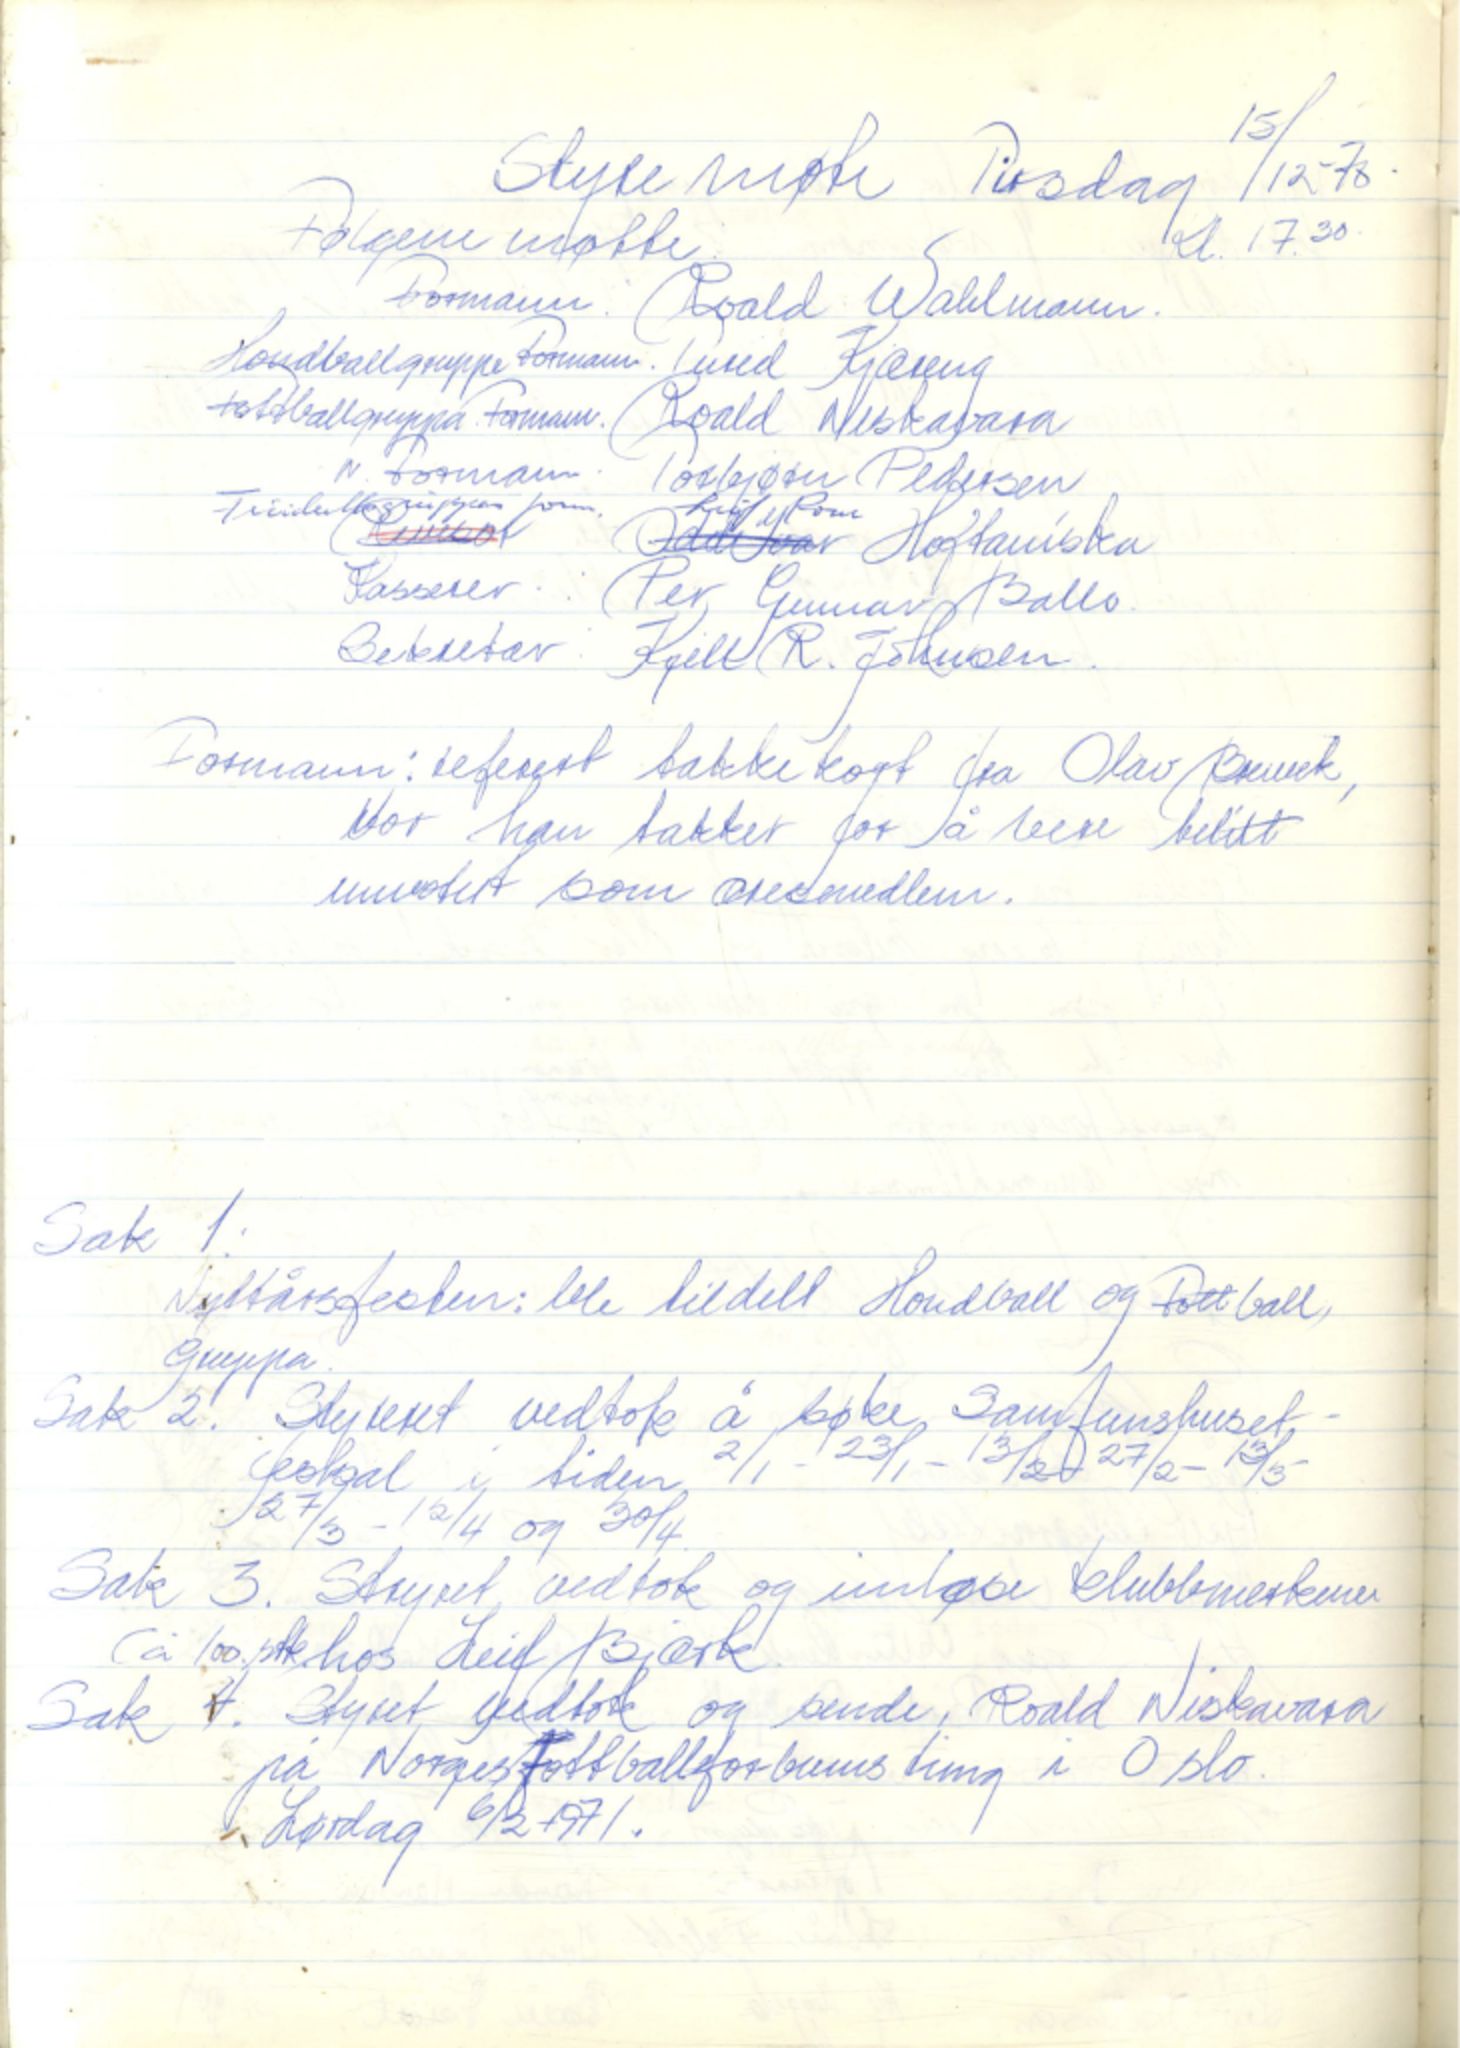 Styre møte Tirsdag 15/12-70.
Følgene møtte: Kl. 17.30.
Formann: Roald Wahlmann.
Handballgruppe Formann. Turid Kjæreng
Fottballgruppa. Formann. Roald Niskavara
N. Formann. Torbjørn Pedersen
Friidrettsgruppas form. Leif Rom
Hoftaniska
Kasserer: Per Gunnar Ballo.
Sekretær: Kjell R. Johnsen.
Formann: referert takkekogt fra Olav,
Hvor han takker for å være blitt
som æresmedlem.
Sak 1:
Nyttårsfesten: ble tildelt Handball og Fottball,
Gruppa.
Sak 2. Styreret vedtok å søke Samfunshuset-
festsal i tiden 2/1 - 23/1 - 13/2 - 27/2 - 13/3 -
27/3 - 12/4 og 30/4
Sak 3. Stryret vedtok og innløse klubbmerkener
(a 100. stk hos Leif Bjørk.
Sak 4. Styret vedtok og sende, Roald Niskavara
på Norges Fottballforbuns ting i Oslo.
Lørdag 6/2-1971.